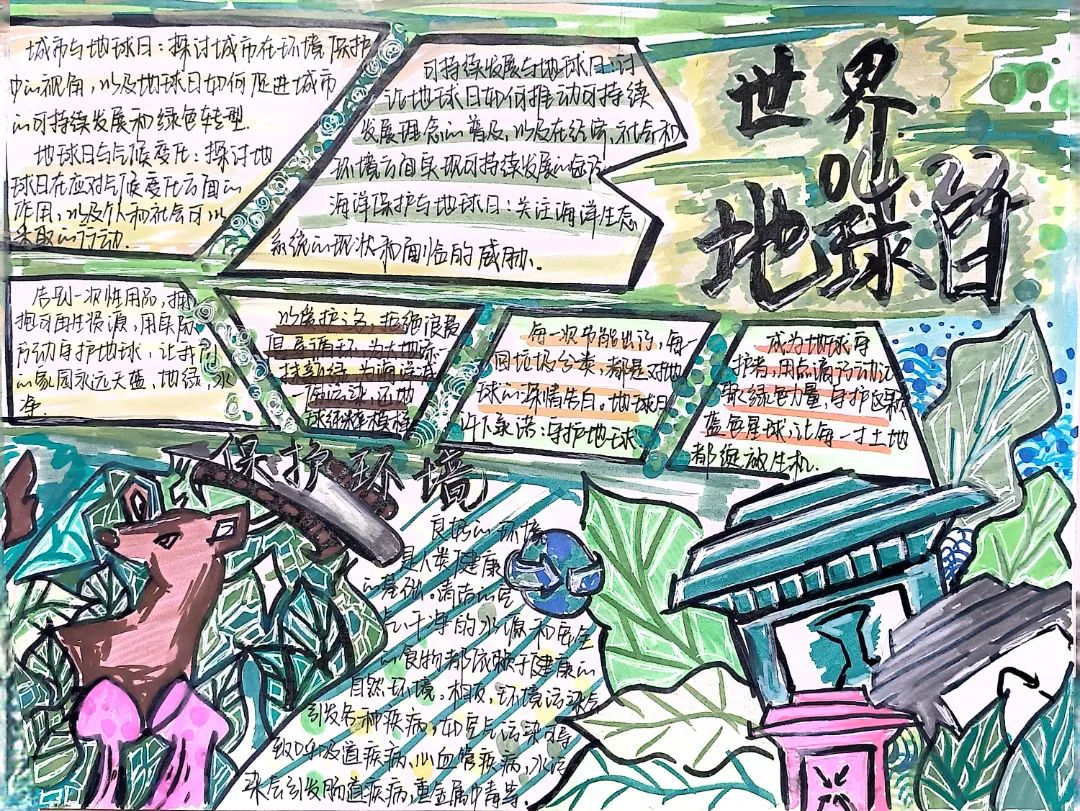 城市与地球日:探讨城市在环境保护
中的视角,以及地球日如何促进城市
的可持续发展和绿色转型.
地球日与气候变化:探讨地
球日在应对气候变化方面的
作用,以及个人和社会可以
采取的行动.
可持续发展与地球日:讨
论地球日如何推动可持续
发展理念的普及,以及在经济,社会和
环境方面实现可持续发展的
海洋保护与地球日:关注海洋生态
系统的现状和面临的威胁.
世界
地球日
告别一次性用品,拥
抱可再生资源,用实际
行动守护地球,让我们
的家园永远天蓝,地绿,水
净.
以爱护之名,拒绝浪费
但是循环,为大地添
一抹新绿,为海洋减
一份污染,还地
球
每一次节能出行,每一
回垃圾分类,都是对地
球的深情告白。地球日
许下承诺:守护地球
成为地球守
护者,用点滴行动汇
聚绿色力量,守护这颗
蓝色星球,让每一寸土地
都绽放生机.
保护环境
良好的环境
是人类健康
的基础。清洁的空
气、干净的水源和安全
的食物都依赖于健康的
自然环境。相反,环境污染会
引发各种疾病,如空气污染可导
致呼吸道疾病,心血管疾病,水污
染会引发肠道疾病,重金属中毒等.